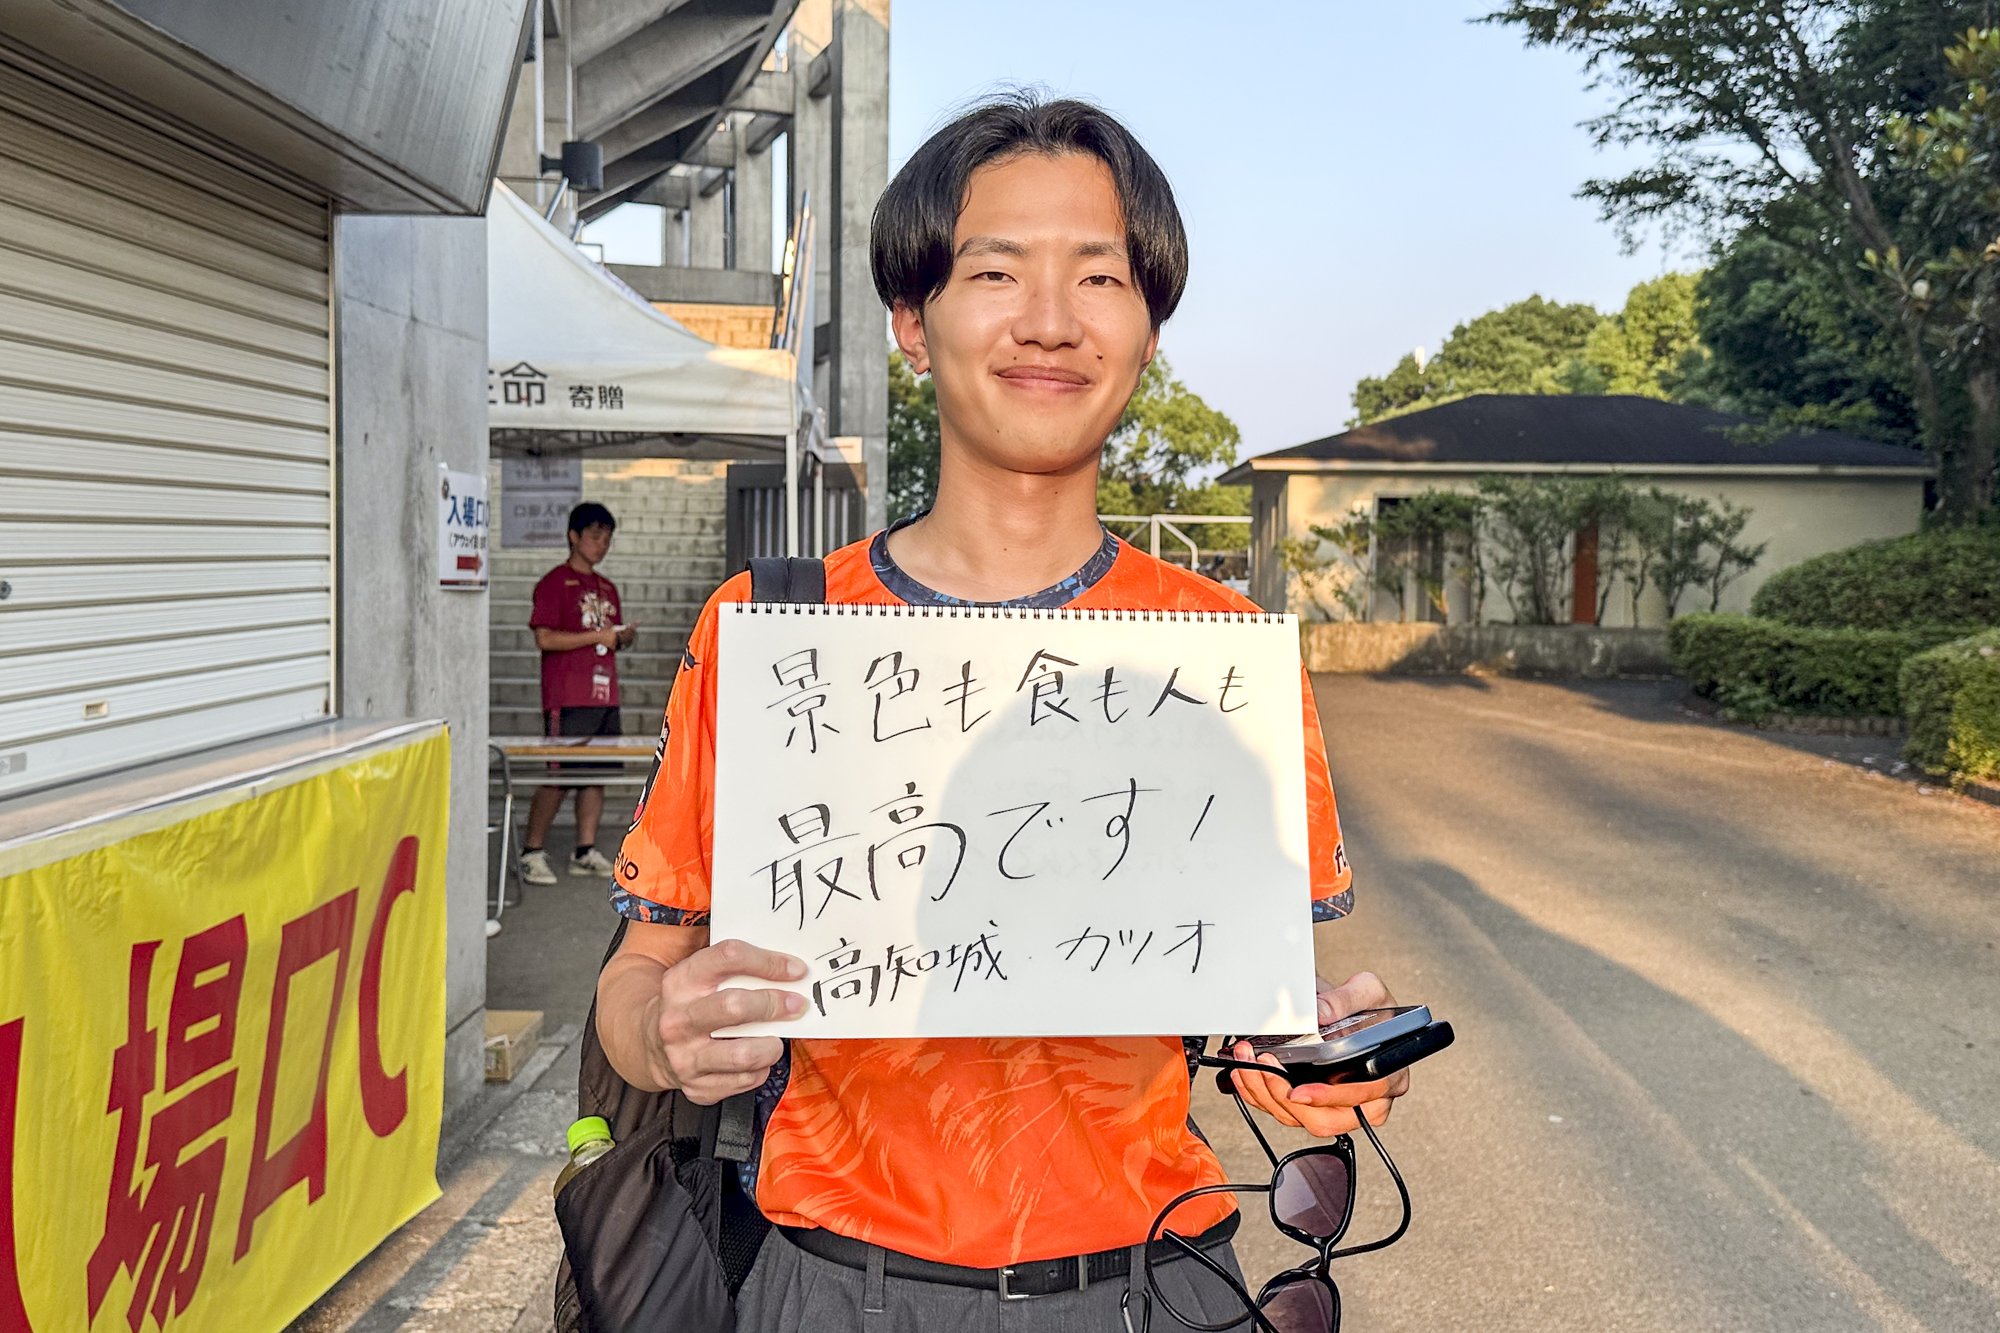 命 寄贈
入場口
景色も食も人も
最高です!
高知城・カツオ
場口C
NO